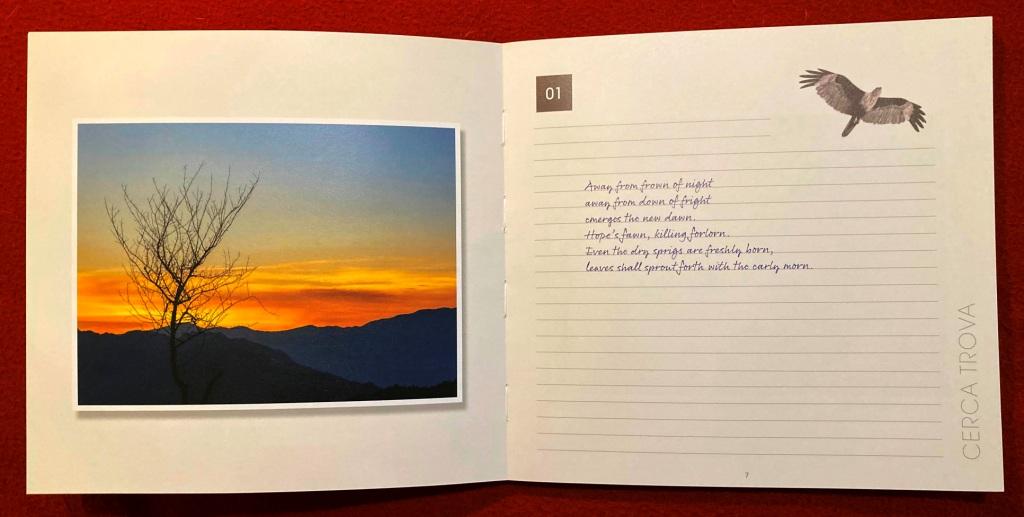 01
Away from frown of night
away from down of fright
emerges the new dawn.
Hope's fawn, killing forlorn.
Even the dry sprigs are freshly born,
leaves shall sprout forth with the early morn.
CERCA TROVA
7